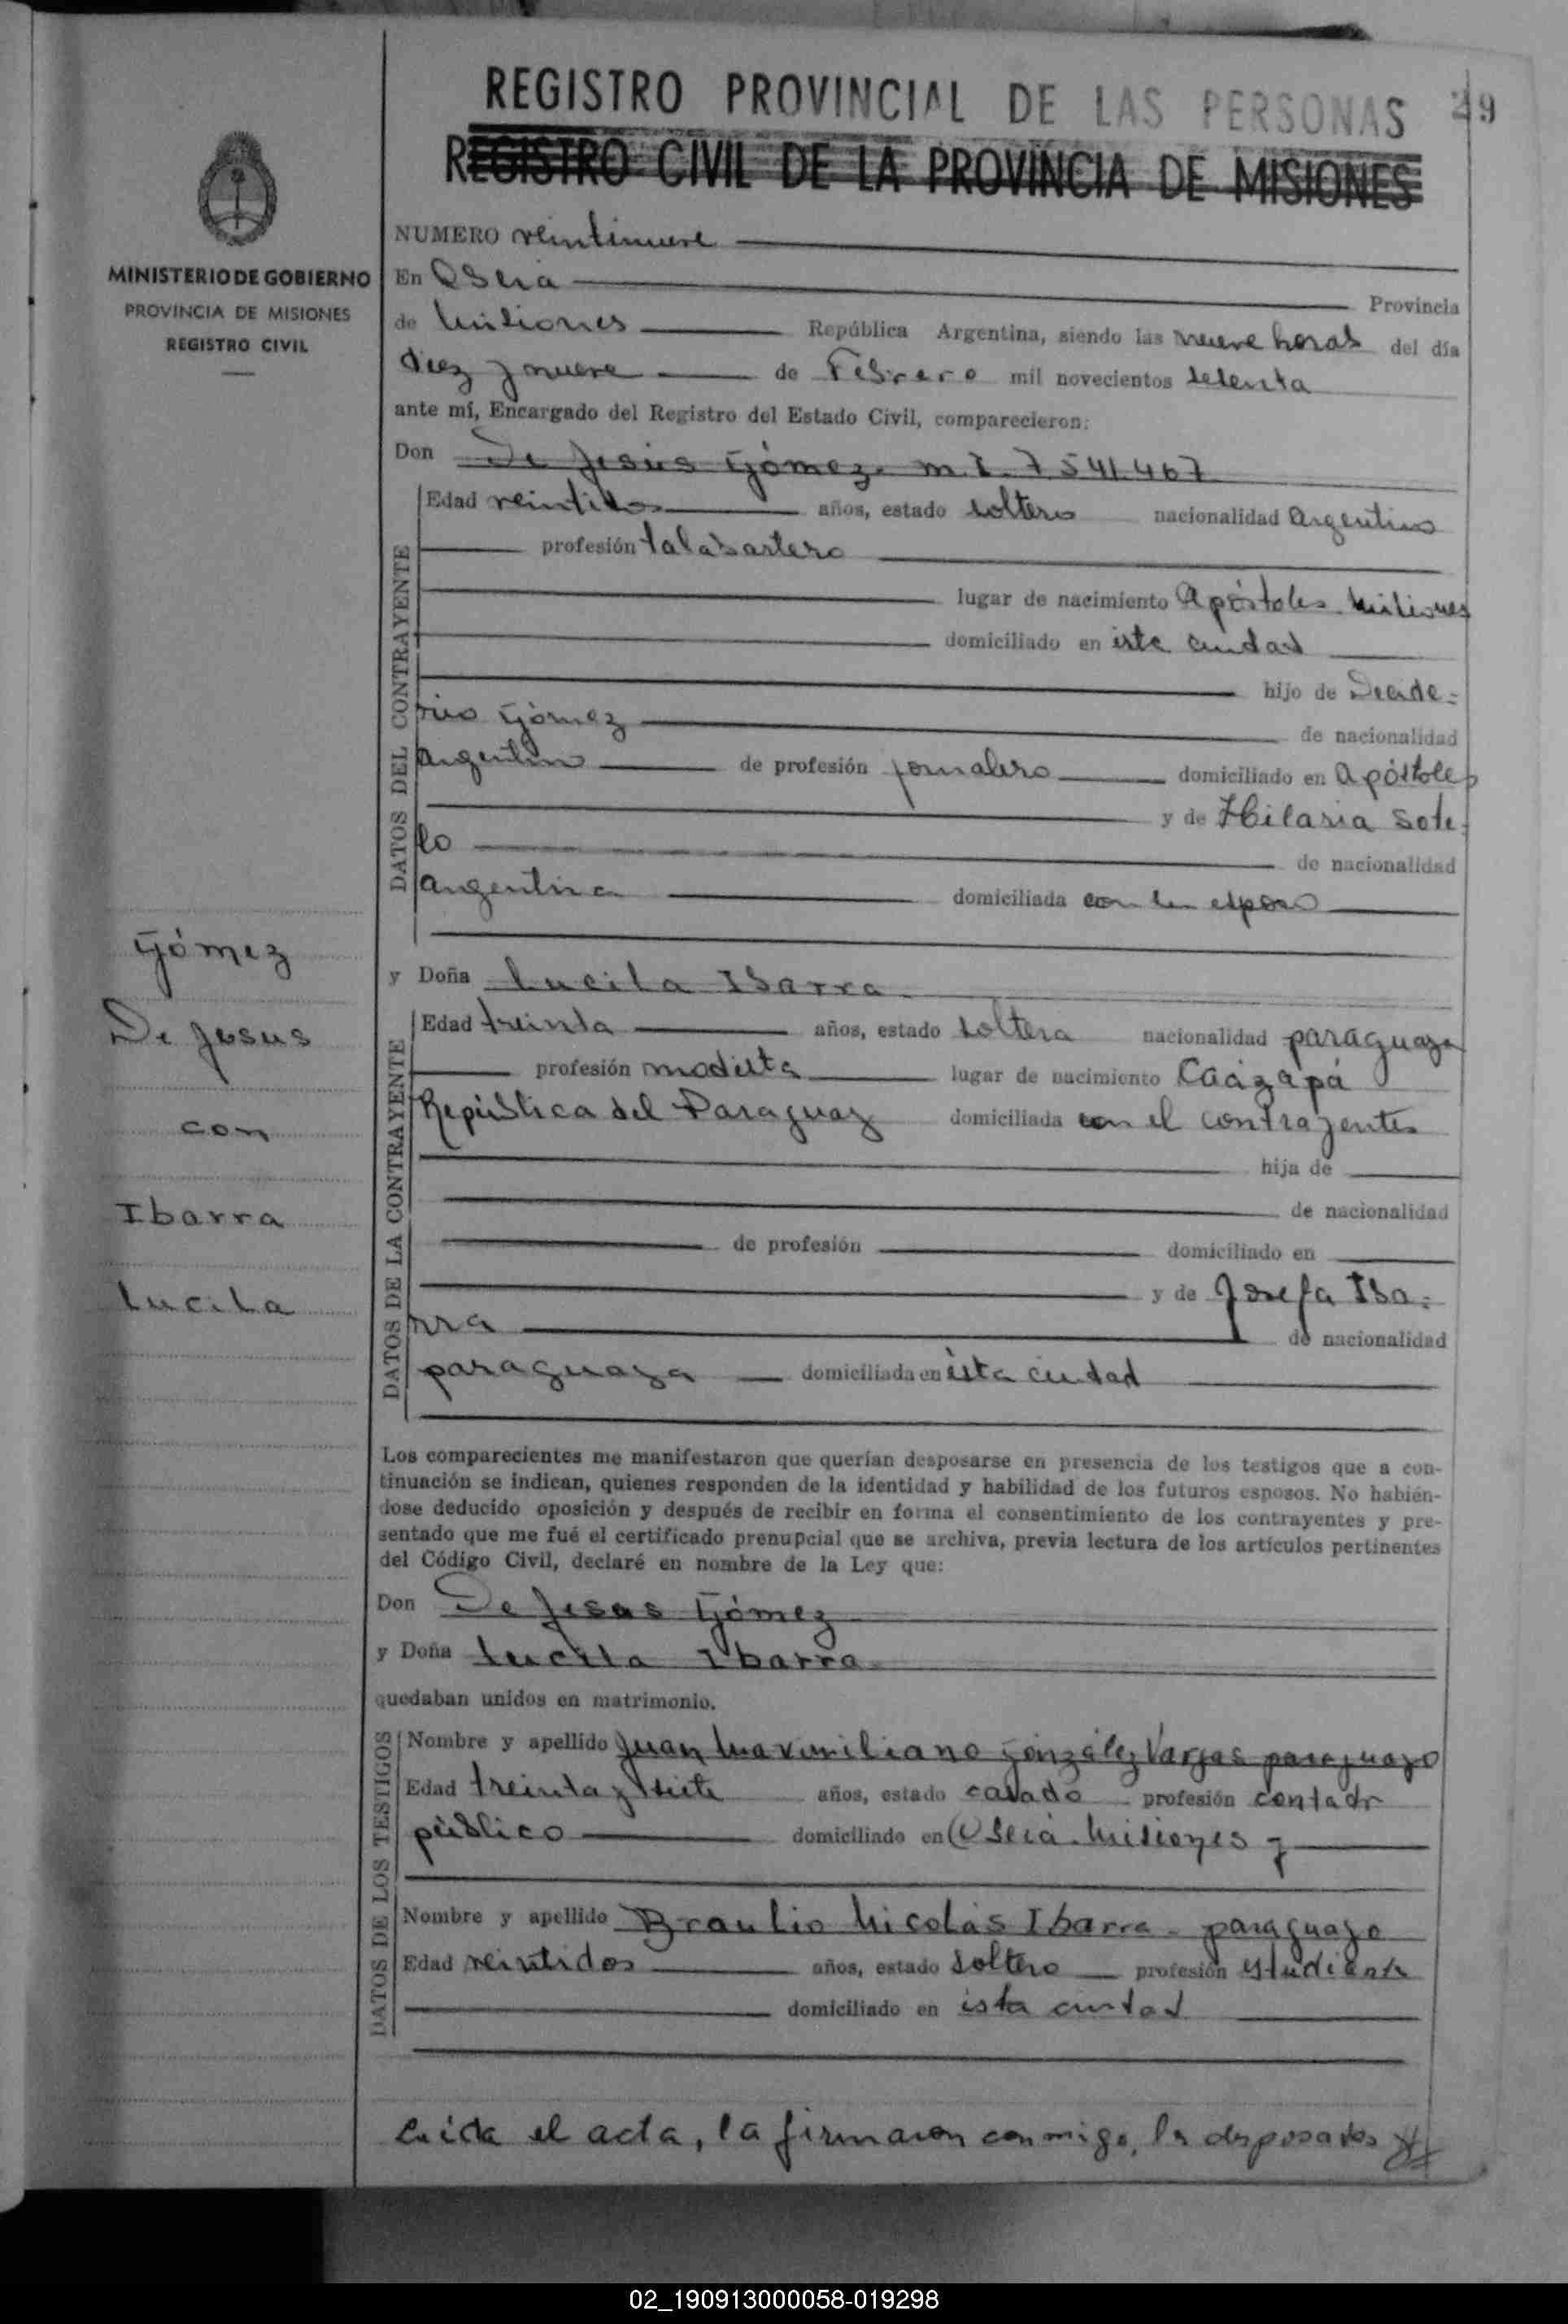 REGISTRO PROVINCIAL DE LAS PERSONAS 29
REGISTRO CIVIL DE LA PROVINCIA DE MISIONES
MINISTERIO DE GOBIERNO
PROVINCIA DE MISIONES
REGISTRO CIVIL
NUMERO veintinueve
En Oberá Provincia
de Misiones República Argentina, siendo las nueve horas del día
diez y nueve de Febrero mil novecientos setenta
ante mí, Encargado del Registro del Estado Civil, comparecieron:
Don De Jesús Gómez. M.I. 7.541.467
DATOS DEL CONTRAYENTE
Edad veintidos años, estado soltero nacionalidad Argentino
profesión talabartero
lugar de nacimiento Apóstoles Misiones
domiciliado en ésta ciudad
hijo de Decide-
rio Gómez de nacionalidad
argentino de profesión jornalero domiciliado en Apóstoles
y de Hilaria Sote-
lo de nacionalidad
argentina domiciliada con su esposo
Gómez
De Jesus
con
Ibarra
Lucila
y Doña Lucila Ibarra
DATOS DE LA CONTRAYENTE
Edad treinta años, estado soltera nacionalidad paraguaya
profesión modista lugar de nacimiento Caazapá
República del Paraguay domiciliada con el contrayente
hija de
de nacionalidad
de profesión domiciliado en
y de Josefa Iba-
rra de nacionalidad
paraguaya domiciliada en ésta ciudad
Los comparecientes me manifestaron que querían desposarse en presencia de los testigos que a con-
tinuación se indican, quienes responden de la identidad y habilidad de los futuros esposos. No habién-
dose deducido oposición y después de recibir en forma el consentimiento de los contrayentes y pre-
sentado que me fué el certificado prenupcial que se archiva, previa lectura de los artículos pertinentes
del Código Civil, declaré en nombre de la Ley que:
Don De Jesus Gómez
y Doña Lucila Ibarra
quedaban unidos en matrimonio.
DATOS DE LOS TESTIGOS
Nombre y apellido Juan Maximiliano González Vargas paraguayo
Edad treinta y siete años, estado casado profesión contador
público domiciliado en Oberá. Misiones y
Nombre y apellido Braulio Nicolás Ibarra - paraguayo
Edad veintidos años, estado soltero profesión estudiante
domiciliado en ésta ciudad
Leída el acta, la firmaron conmigo, los desposados
02_190913000058-019298